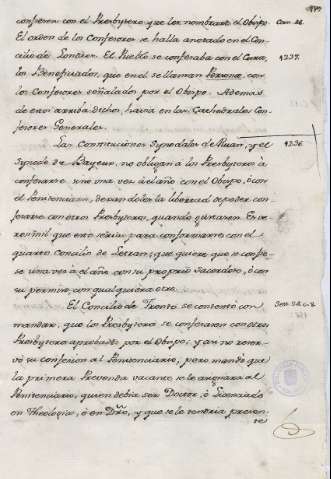 confiesen con el Presbytero que los nombrare el Obispo. Can. 26.
El orden de los Confesores se halla anotado en el Con-
cilio de Londres. El Pueblo se confesaba con el Cura, 1237.
los Beneficiados, que en el se llaman Persone, con
los Confesores señalados por el Obispo. Ademas
de esto arriba dicho, havia en las Cathedrales Con-
fesores Generales.
Las Constituciones Synodales de Ruan, y el 1236
Synodo de Bayeux, no obligan a los Presbyteros à
confesarse sino una vez al año con el Obispo, ò con
el Penitenciario, dexandolos la libertad de poder con-
fesarse con otros Presbyteros, quando quisieren. Es ve-
rosimil que esto seria para conformarse con el
quarto Concilio de Letran, que quiere que se confie-
se una vez à el año con su proprio Sacerdote, ò con
su permiso, con qualquiera otro.
El Concilio de Trento se contentó con Sess. 24 c. 8
mandar, que los Presbyteros se confesasen con otro
Presbytero aprobado por el Obispo; y asi no reser-
vó su confesion al Penitenciario, pero mandó que
la primera Prevenda vacante se le asignara al
Penitenciario, quien debia ser Doctor, ò Licenciado
en Theologia, ò en Dro, y que se le tendria presen-
te